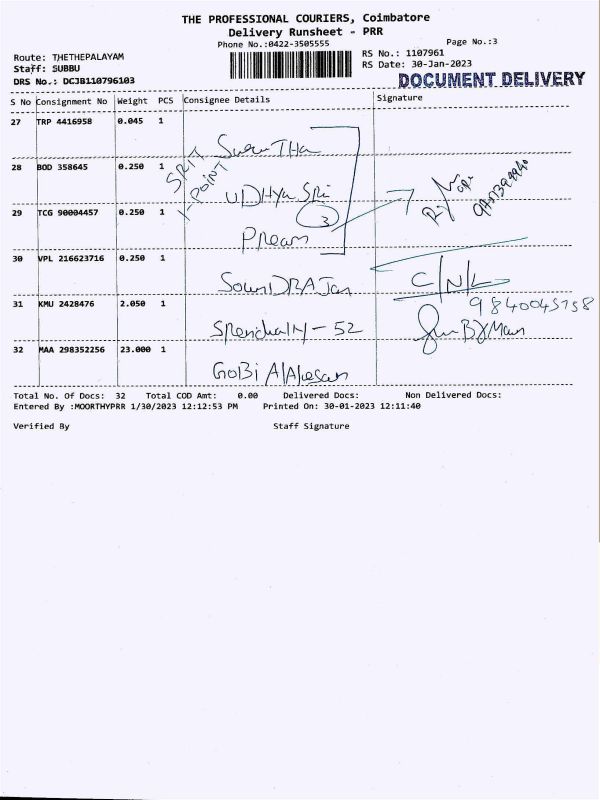 THE PROFESSIONAL COURIERS, Coimbatore
Delivery Runsheet - PRR
Phone No.:0422-3505555
Page No.:3
Route: THETHEPALAYAM
RS No.: 1107961
Staff: SUBBU
RS Date: 30-Jan-2023
DRS No.: DCJB110796103
DOCUMENT DELIVERY
S No Consignment No Weight PCS Consignee Details Signature
27 TRP 4416958 0.045 1
SRIT
K-POINT
28 BOD 358645 0.250 1
UDHya Sri
29 TCG 90004457 0.250 1
3
30 VPL 216623716 0.250 1
SounDRAJan
C/N/L
31 KMU 2428476 2.050 1
9840045758
- 52
32 MAA 298352256 23.000 1
GoBi
Total No. Of Docs: 32 Total COD Amt: 0.00 Delivered Docs: Non Delivered Docs:
Entered By :MOORTHYPRR 1/30/2023 12:12:53 PM Printed On: 30-01-2023 12:11:40
Verified By Staff Signature